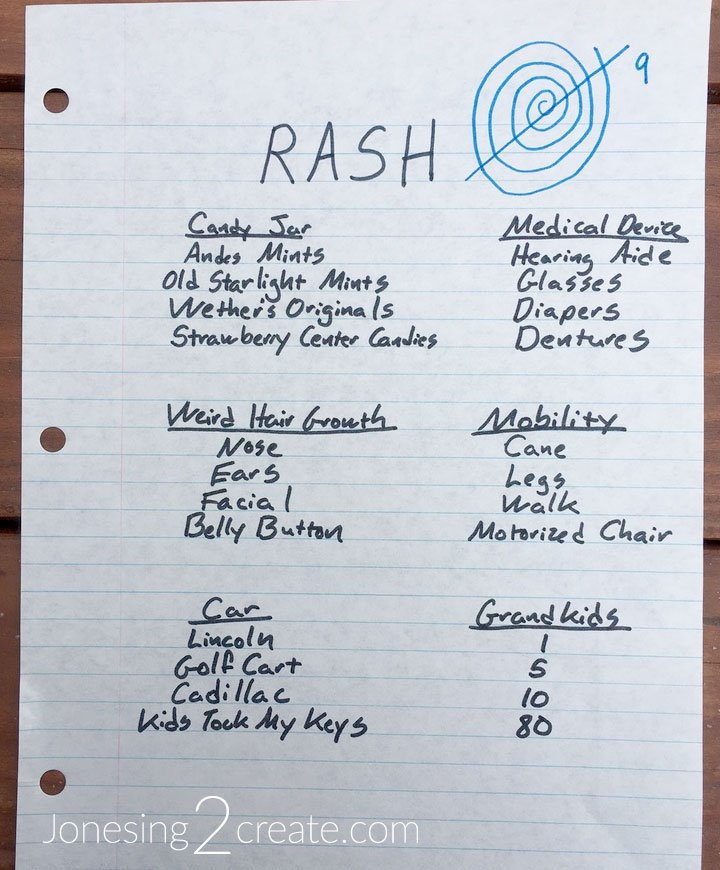 9
RASH
Candy Jar
Andes Mints
Old Starlight Mints
Wether's Originals
Strawberry Center Candies
Medical Device
Hearing Aide
Glasses
Diapers
Dentures
Weird Hair Growth
Nose
Ears
Facial
Belly Button
Mobility
Cane
Legs
Walk
Motorized Chair
Car
Lincoln
Golf Cart
Cadillac
Kids Took My Keys
Grandkids
1
5
10
80
Jonesing2create.com